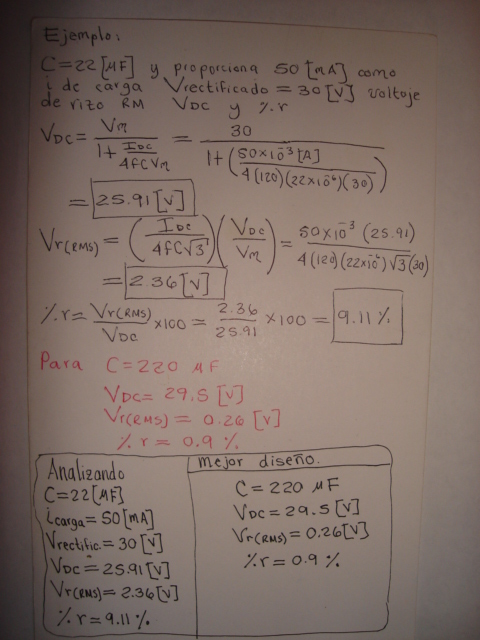 Ejemplo:
C=22[μF] y proporciona 50[mA] como
i de carga Vrectificado = 30[V] voltaje
de rizo RM VDC y %r
VDC = Vm / (1 + IDC / 4fCVm) = 30 / (1 + (50×10⁻³[A] / 4(120)(22×10⁻⁶)(30)))
= 25.91[V]
Vr(RMS) = (IDC / 4fC√3) (VDC / Vm) = 50×10⁻³ (25.91) / 4(120)(22×10⁻⁶)√3(30)
= 2.36[V]
%r = Vr(RMS) / VDC ×100 = 2.36 / 25.91 ×100 = 9.11%
Para C=220 μF
VDC= 29.5[V]
Vr(RMS) = 0.26[V]
%r = 0.9%
Analizando
C=22[μF]
icarga=50[mA]
Vrectific.=30[V]
VDC = 25.91[V]
Vr(RMS) = 2.36[V]
%r = 9.11%
mejor diseño.
C=220 μF
VDC = 29.5[V]
Vr(RMS) = 0.26[V]
%r = 0.9%